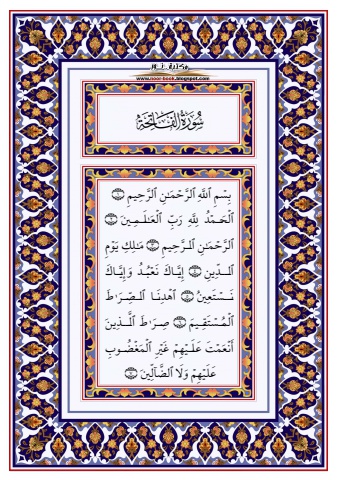 www.noor-book.blogspot.com
سُورَةُ الفَاتِحَةِ
بِسْمِ اللَّهِ الرَّحْمَٰنِ الرَّحِيمِ ۝١
الْحَمْدُ لِلَّهِ رَبِّ الْعَالَمِينَ ۝٢
الرَّحْمَٰنِ الرَّحِيمِ ۝٣ مَالِكِ يَوْمِ
الدِّينِ ۝٤ إِيَّاكَ نَعْبُدُ وَإِيَّاكَ
نَسْتَعِينُ ۝٥ اهْدِنَا الصِّرَاطَ
الْمُسْتَقِيمَ ۝٦ صِرَاطَ الَّذِينَ
أَنْعَمْتَ عَلَيْهِمْ غَيْرِ الْمَغْضُوبِ
عَلَيْهِمْ وَلَا الضَّالِّينَ ۝٧